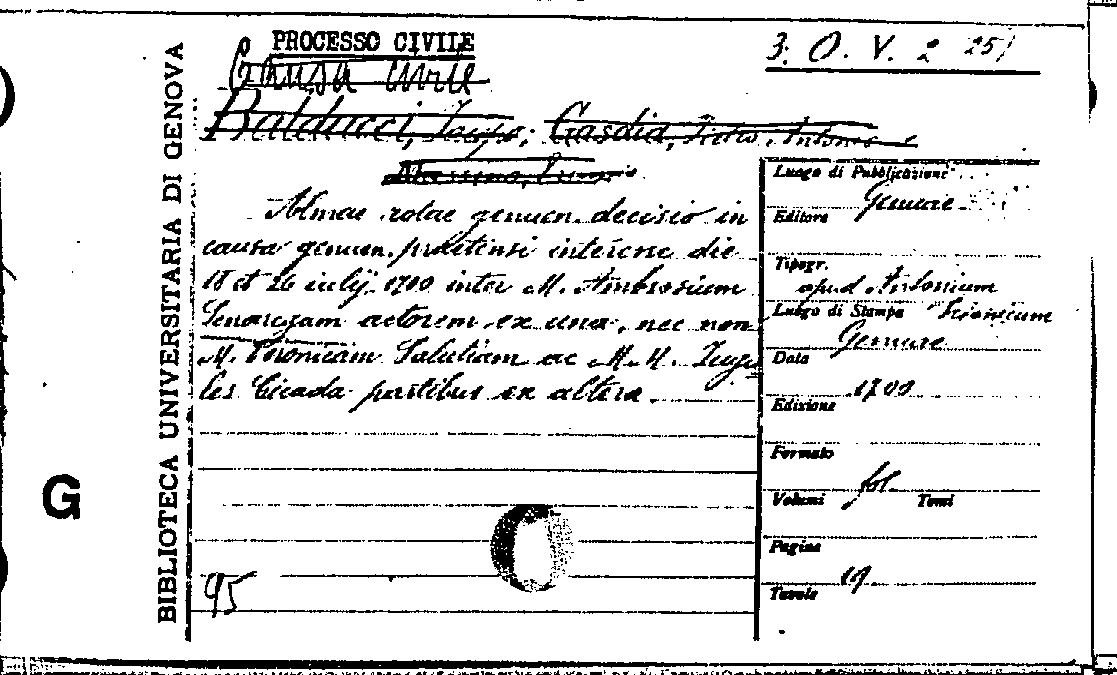 PROCESSO CIVILE
3. O. V. 2 25/
Causa civile
Balducci, ; Gasdia, Pietro, Antonio
Almae rotae genuen. decisio in
causa genuen. praetensi interesse die
18 et 26 iulij 1700 inter M. Ambrosium
Senaregam actorem ex una, nec non
M. Veronicam Salutiam ac M. M. Iuga
les Cicada partibus ex altera.
95
BIBLIOTECA UNIVERSITARIA DI GENOVA
G
Luogo di Pubblicazione
Genuae
Editore
Tipogr.
apud Antonium
Luogo di Stampa
Genuae
Data
1700
Edizione
Formato
Volumi fol Tomi
Pagine
19
Tavole